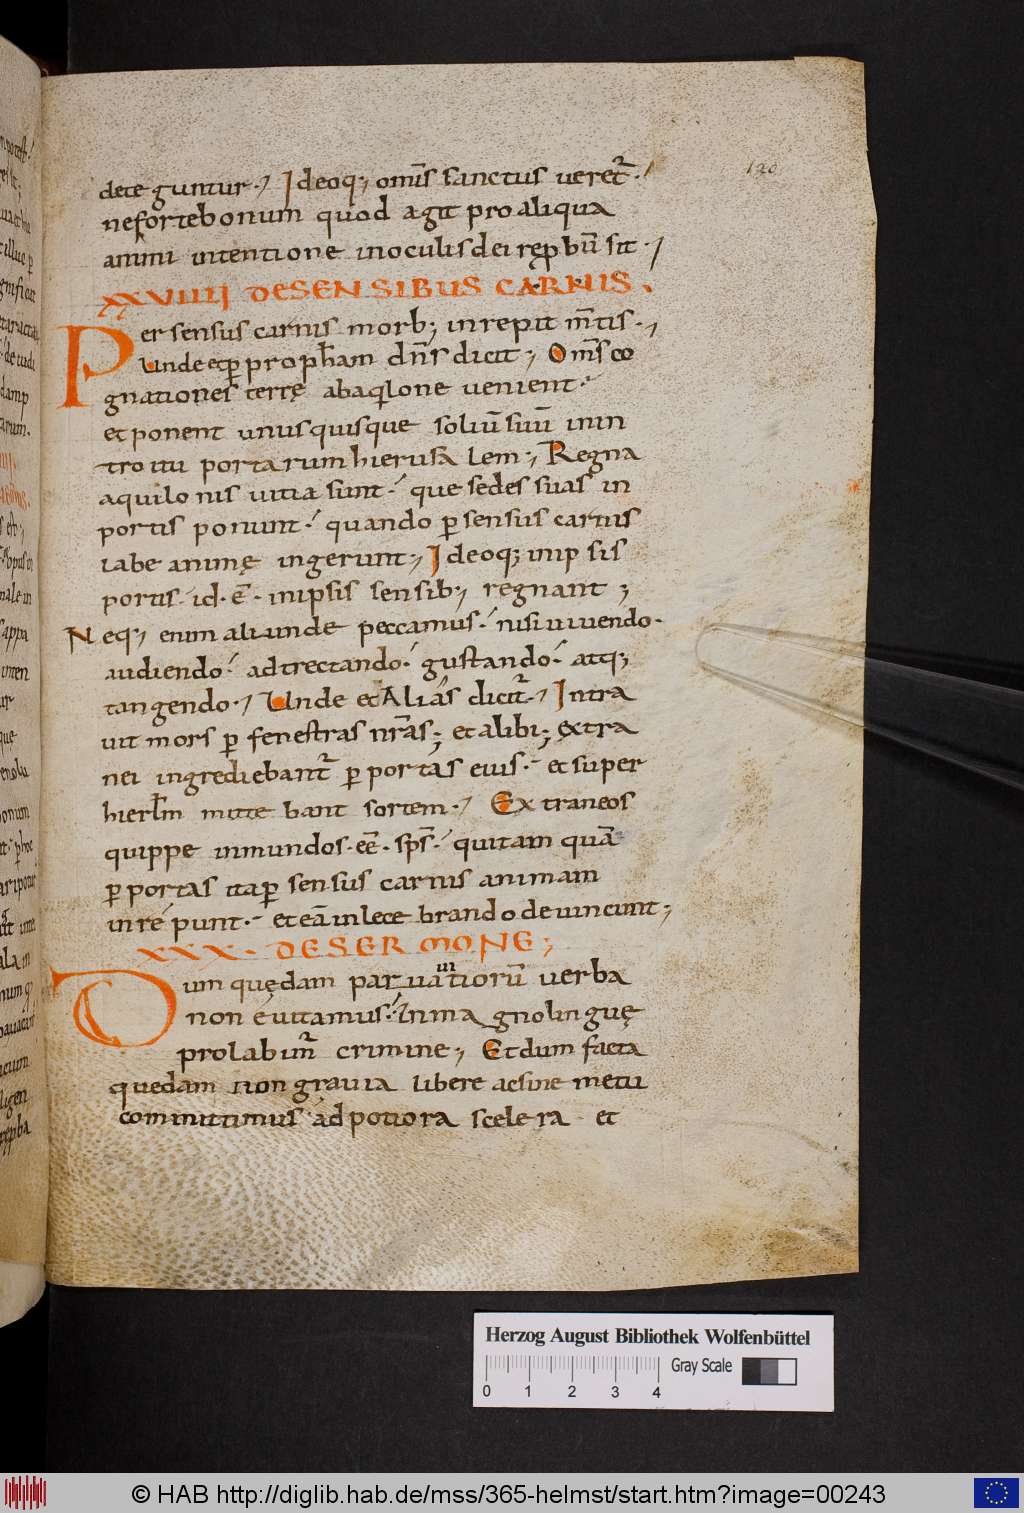 120
deteguntur·/ Ideoq; om̄is sanctus ueret̃·/
nefortebonum quod agit proaliqua
animi intentione inoculis dei rep̱bū sit·/
XXVIIII DESENSIBUS CARNIS.
Per sensus carnis morb; inrepit m̄tis·,
Unde et ꝑ propħam dn̄s dicit; Om̄s co
gnationes terrę abaq̇lone uenient·
et ponent unusquisque soliū suū inin
troitu portarum hierusalem·, Regna
aquilonis uitia sunt· que sedes suas in
portis ponunt· quando ꝑ sensus carnis
labe animę ingerunt·, Ideoq; inipsis
portis· id· ē· inipsis sensib;, regnant;
Neq;, enim aliunde peccamus· nisi uiuendo·
audiendo· adtrectando· gustando· atq;
tangendo·/ Unde et Alias dicit̃·/ Intra
uit mors ꝑ fenestras nr̄as; et alibi; extra
nei ingrediebant̃ ꝑ portas eius· et super
hierłm mittebant sortem·/ Extraneos
quippe inmundos· eē· sp̄s· quitam quā
ꝑ portas itaꝑ sensus carnis animam
inrepunt· et eā inlecebrando deuincunt;
XXX· DESERMONE;
Dum quędam paruatiorū uerba
non euitamus· Inmagnolinguę
prolabim̃ crimine·, Et dum facta
quedam non grauia libere acsine metu
committimus· ad potiora scelera· et
Herzog August Bibliothek Wolfenbüttel
Gray Scale
0 1 2 3 4
© HAB http://diglib.hab.de/mss/365-helmst/start.htm?image=00243